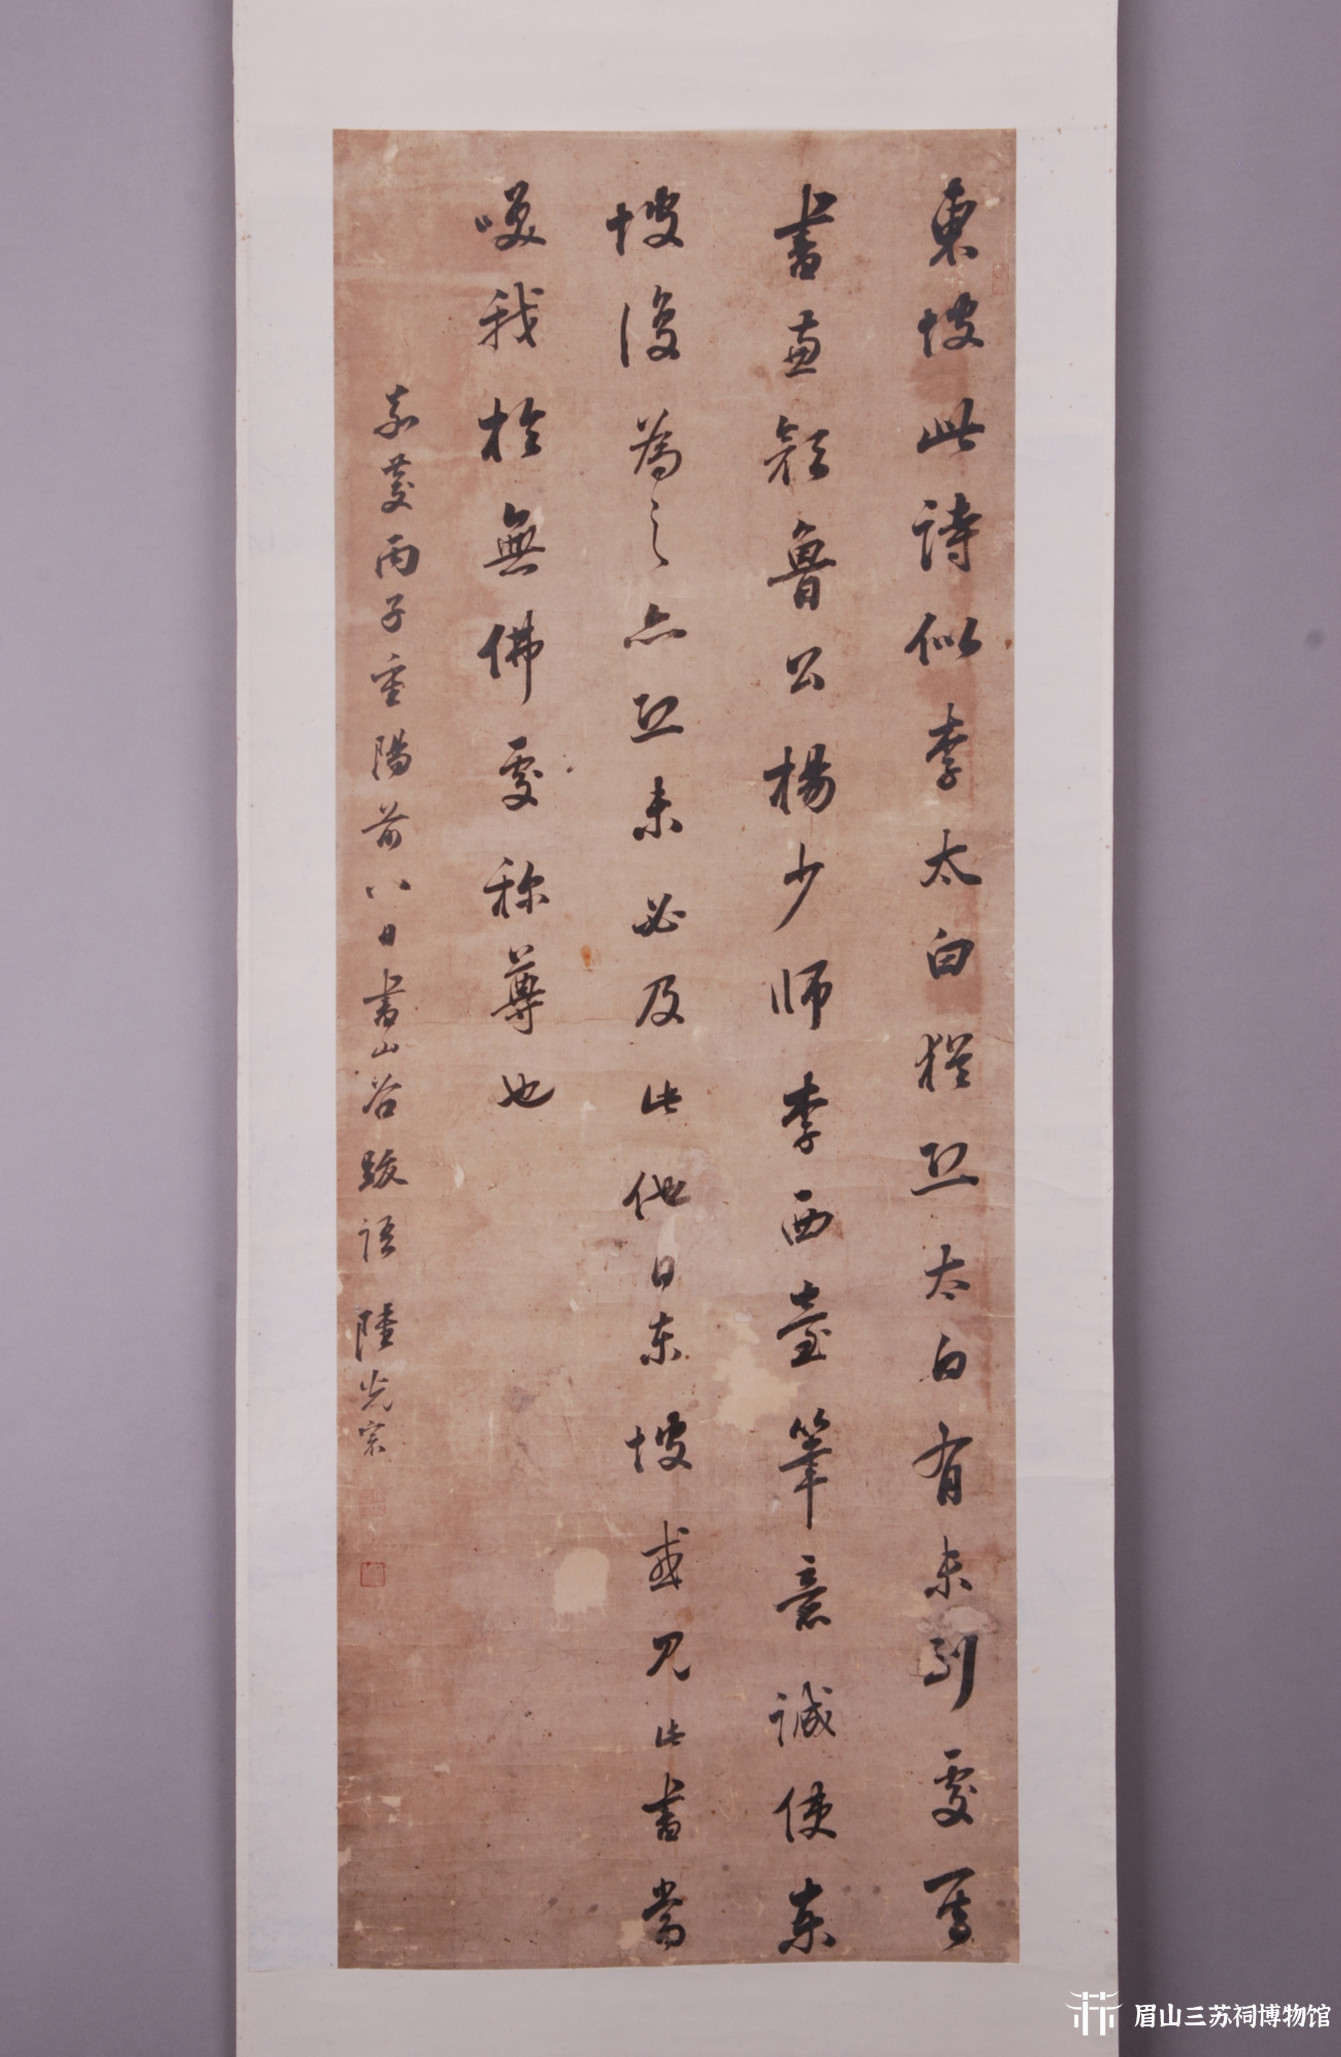 東坡此詩似李太白猶恐太白有未到處焉
書兼顔魯公楊少師李西臺筆意誠使東
坡復為之亦恐未必及此他日東坡或見此書當
笑我於無佛處称尊也
嘉慶丙子重陽前八日書山谷跋語 陸光宗
眉山三苏祠博物馆